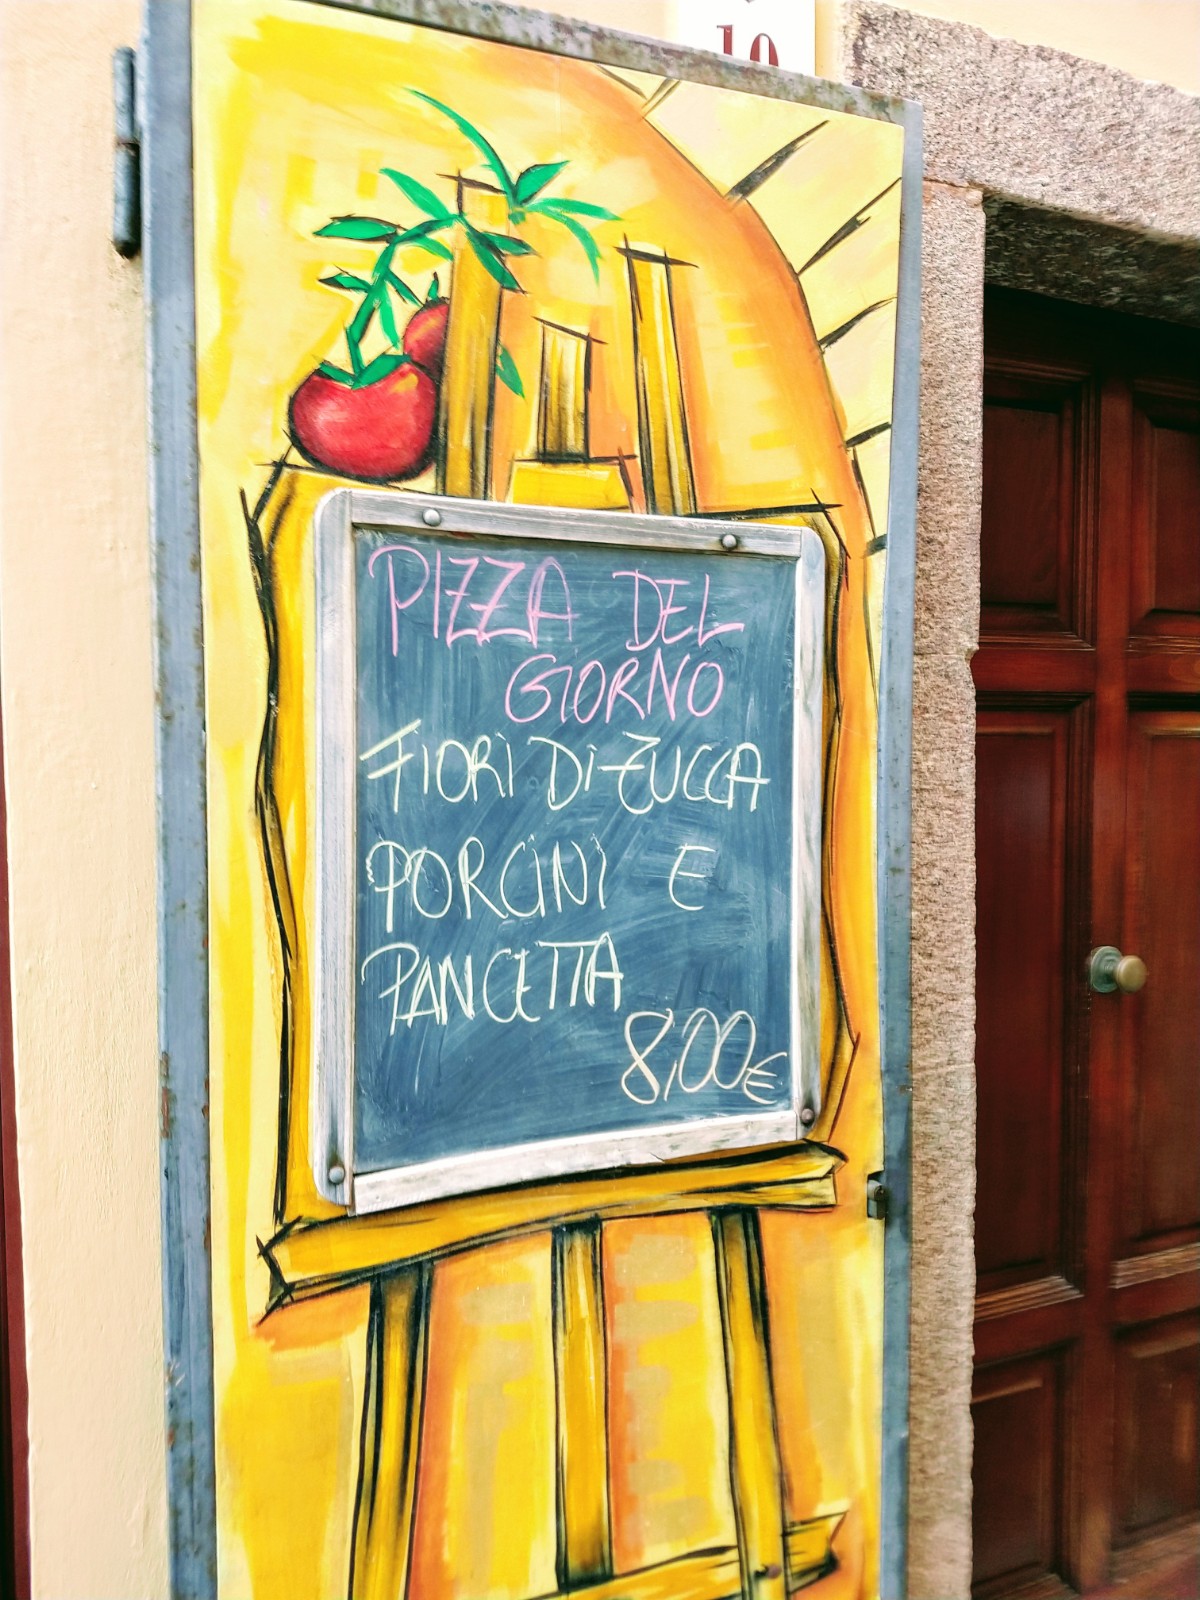 10
PIZZA DEL
GIORNO
FIORI DI ZUCCA
PORCINI E
PANCETTA
8,00€